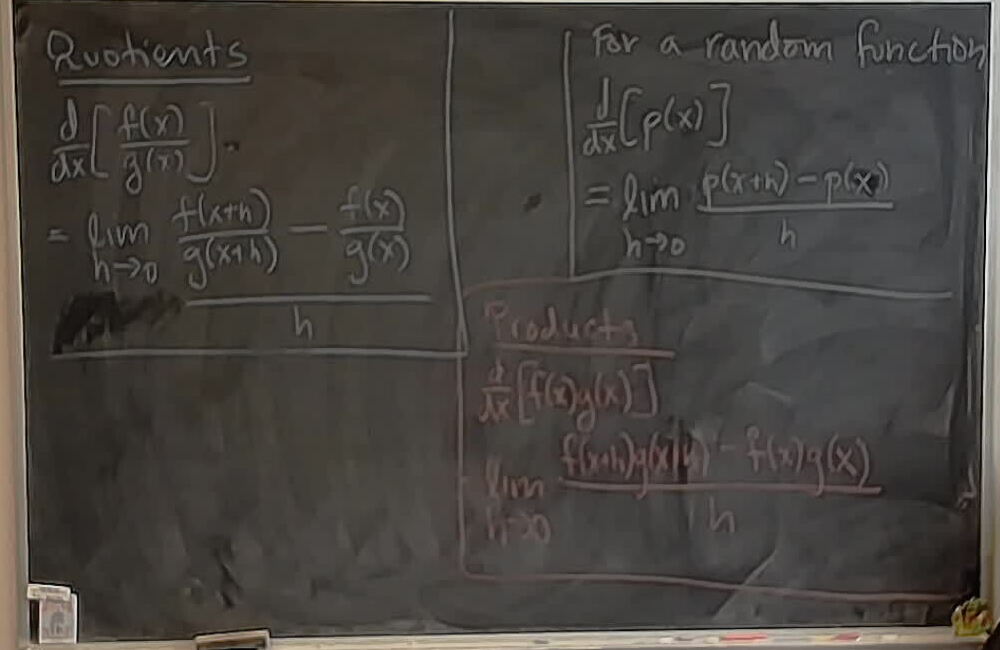 Quotients
d/dx [ f(x)/g(x) ].
= lim h→0 ( f(x+h)/g(x+h) − f(x)/g(x) ) / h
For a random function
d/dx [ p(x) ]
= lim h→0 ( p(x+h) − p(x) ) / h
Products
d/dx [f(x)g(x)]
lim h→0 ( f(x+h)g(x+h) − f(x)g(x) ) / h